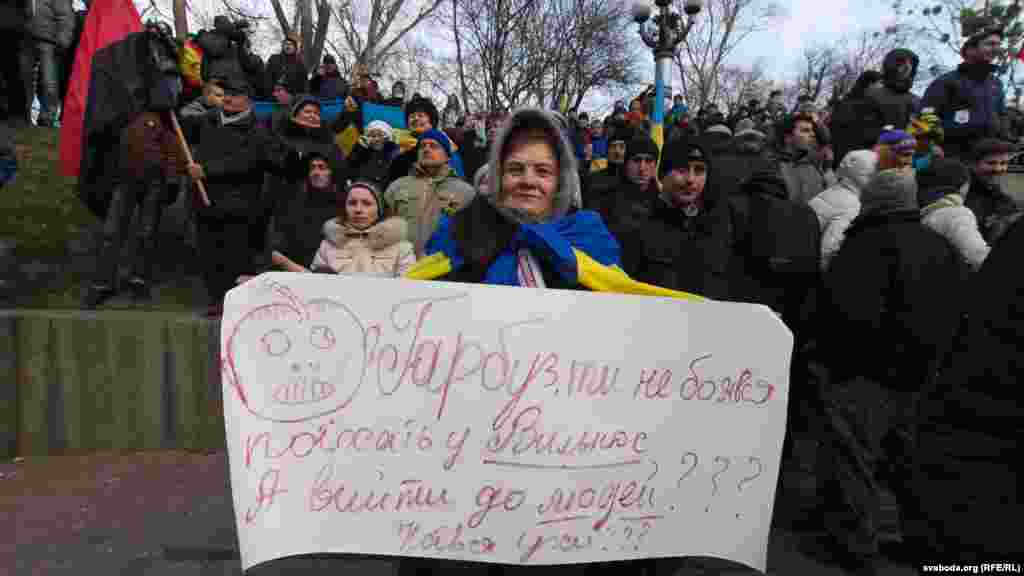 Гарбуз, ти не боявся
поїхать у Вильнюс
А вийти до людей????
svaboda.org (RFE/RL)